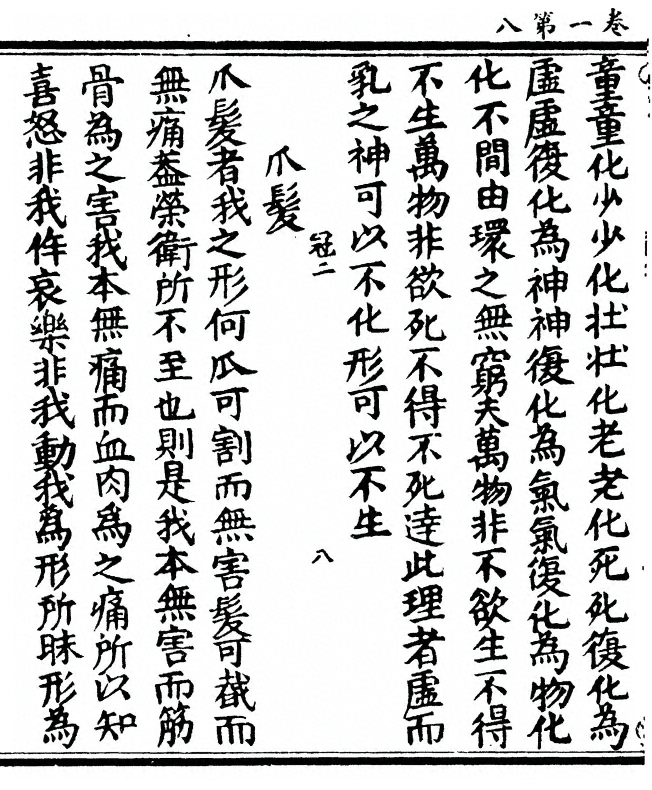 卷一第八
童童化少少化壯壯化老老化死死復化為
虛虛復化為神神復化為氣氣復化為物化
化不間由環之無窮夫萬物非不欲生不得
不生萬物非欲死不得不死達此理者虛而
乳之神可以不化形可以不生
冠二
八
爪髮
爪髮者我之形何爪可割而無害髮可截而
無痛蓋榮衛所不至也則是我本無害而筋
骨為之害我本無痛而血肉為之痛所以知
喜怒非我作哀樂非我動我為形所昧形為